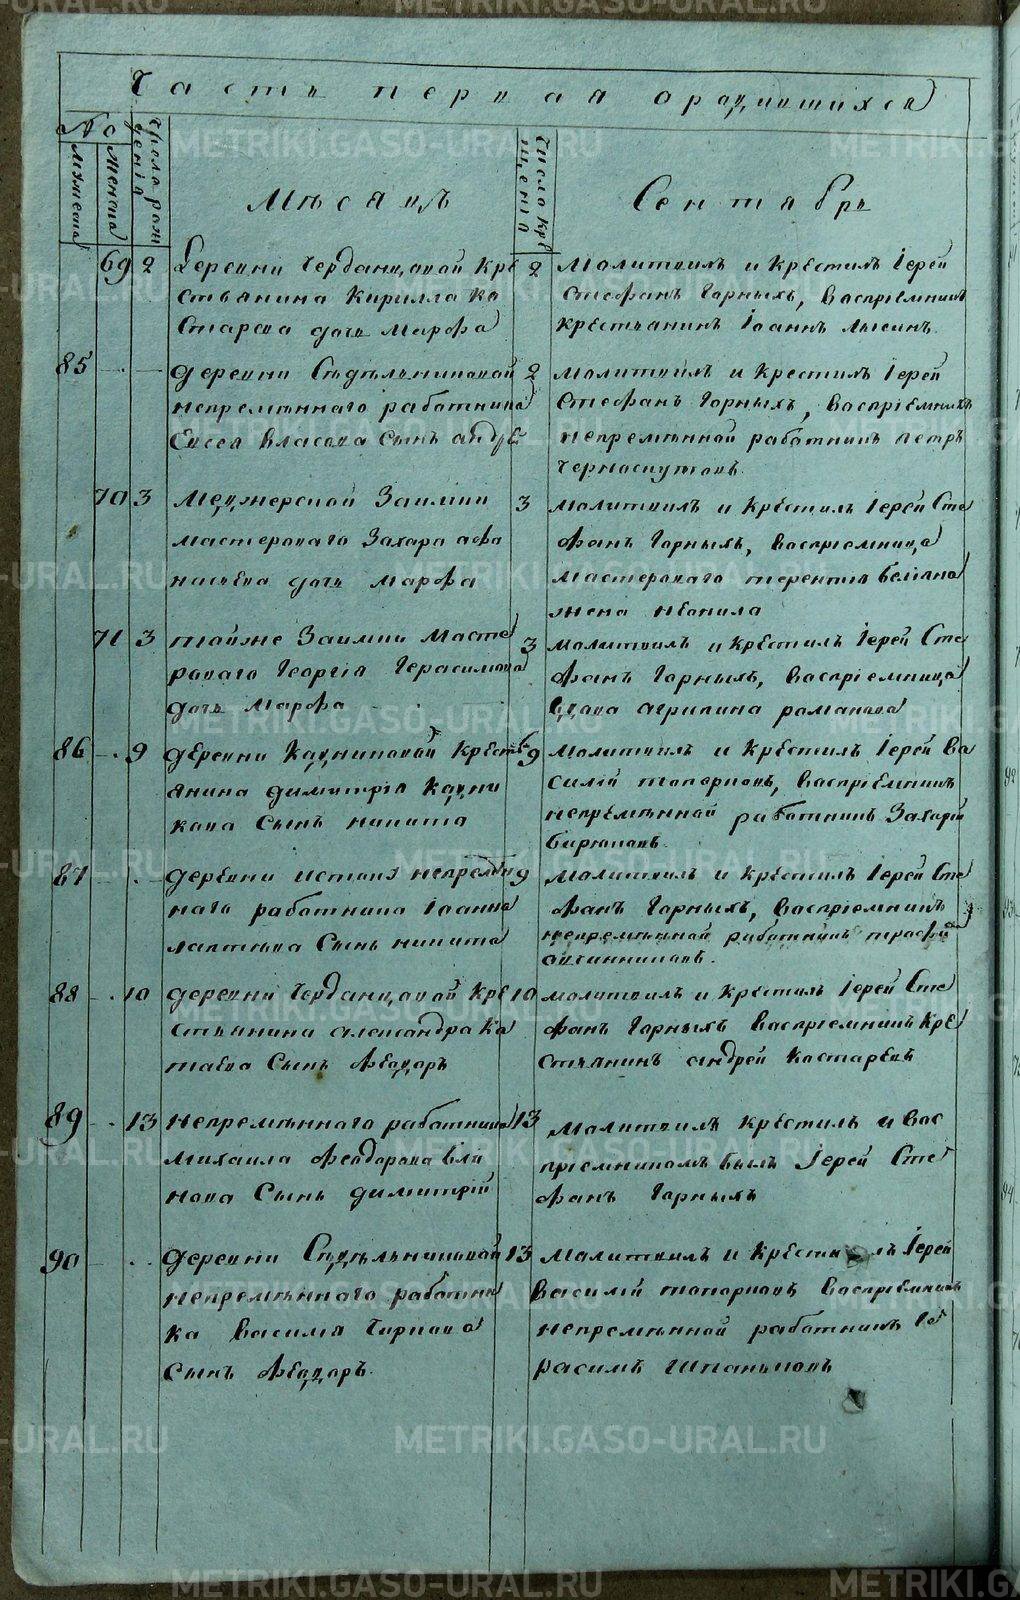 Часть первая ородившихся
№
мужеска
женска
Числа рож
денія
Мѣсяцъ
Числа кре
щенія
Сентябрь
69 2 Деревни Черданцовой Кре
стьянина Кирилла Ко
старева дочь Марфа
2 Молитвилъ и крестилъ Іерей
Стефанъ Горныхъ, Воспріемникъ
крестьянинъ Іоаннъ Лысинъ
85 деревни Сѣдѣльниковой
непремѣннаго работника
Елисея Власова Сынъ андрей
2 молитвилъ и крестилъ Іерей
Стефанъ Горныхъ, Воспріемникъ
непремѣнной работникъ петръ
Черноскутовъ
70 3 Заимки
мастероваго Захара афо
насьева дочь Марфа
3 молитвилъ и крестилъ Іерей Сте
фанъ Горныхъ, Воспріемница
Мастероваго терентія
жена неонила
71 3 тойже Заимки Масте
роваго Георгія Герасимова
дочь Марфа
3 молитвилъ и крестилъ Іерей Сте
фанъ Горныхъ, Воспріемница
Вдова агрипина романова
86 9 деревни Кадниковой Кресть
янина димитрія Кадни
кова Сынъ никита
9 молитвилъ и крестилъ Іерей Ва
силій топорковъ, Воспріемникъ
непремѣнной работникъ Захарій
бирюковъ
87 деревни истокъ непремѣн
наго работника Іоанна
лаптева Сынъ никита
9 Молитвилъ и крестилъ Іерей Сте
фанъ Горныхъ, Воспріемникъ
непремѣнной работникъ
овчинниковъ.
88 10 деревни Черданцовой Кре
стьянина александра Ка
таева Сынъ Феодоръ
10 молитвилъ и крестилъ Іерей Сте
фанъ Горныхъ Воспріемникъ Кре
стьянинъ андрей Костаревъ
89 13 непремѣннаго работника
михаила Феодорова Блі
нова Сынъ димитрій
13 молитвилъ крестилъ и Вос
пріемникомъ былъ Іерей Сте
фанъ Горныхъ
90 деревни Сѣдѣльниковой
непремѣннаго работни
ка Василія Чиркова
сынъ Феодоръ.
13 молитвилъ и крестилъ Іерей
Василій топорковъ Воспріемникъ
непремѣнной работникъ Ге
расимъ Шпаньковъ
METRIKI.GASO-URAL.RU